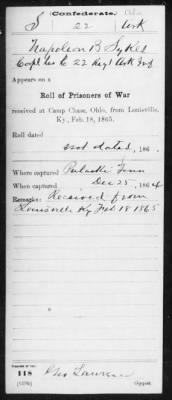 (Confederate.)
S 22 Ark
Napoleon B Sykes
Co C 22 Regt Ark Inf
Appears on a
Roll of Prisoners of War
received at Camp Chase, Ohio, from Louisville,
Ky., Feb. 18, 1865.
Roll dated
not dated, 186 .
Where captured Pulaski Tenn
When captured Dec 25, 1864
Remarks: Received from
Louisville Ky Feb 18 1865
118
(639b)
Copyist.